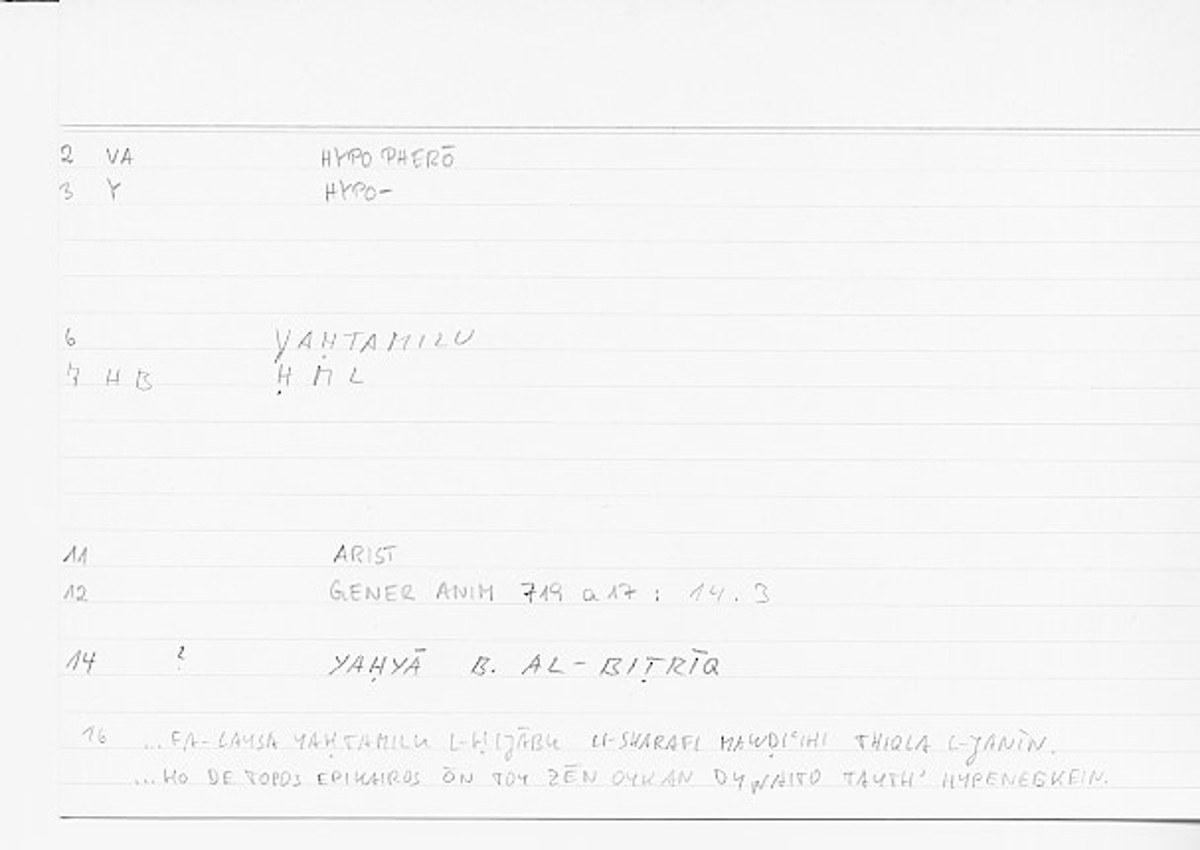 2 VA HYPOPHERŌ
3 Y HYPO-
6 YAḤTAMILU
7 H B Ḥ M L
11 ARIST
12 GENER ANIM 719 a 17 : 14.3
14 ? YAḤYĀ B. AL-BIṬRĪQ
16 ...FA-LAYSA YAḤTAMILU L-ḤIJĀBU LI-SHARAFI MAWḌIʿIHI THIQLA L-JANĪN.
...HO DE TOPOS EPIKAIROS ŌN TOY ZĒN OYK AN DYNAITO TAYTH' HYPENEGKEIN.